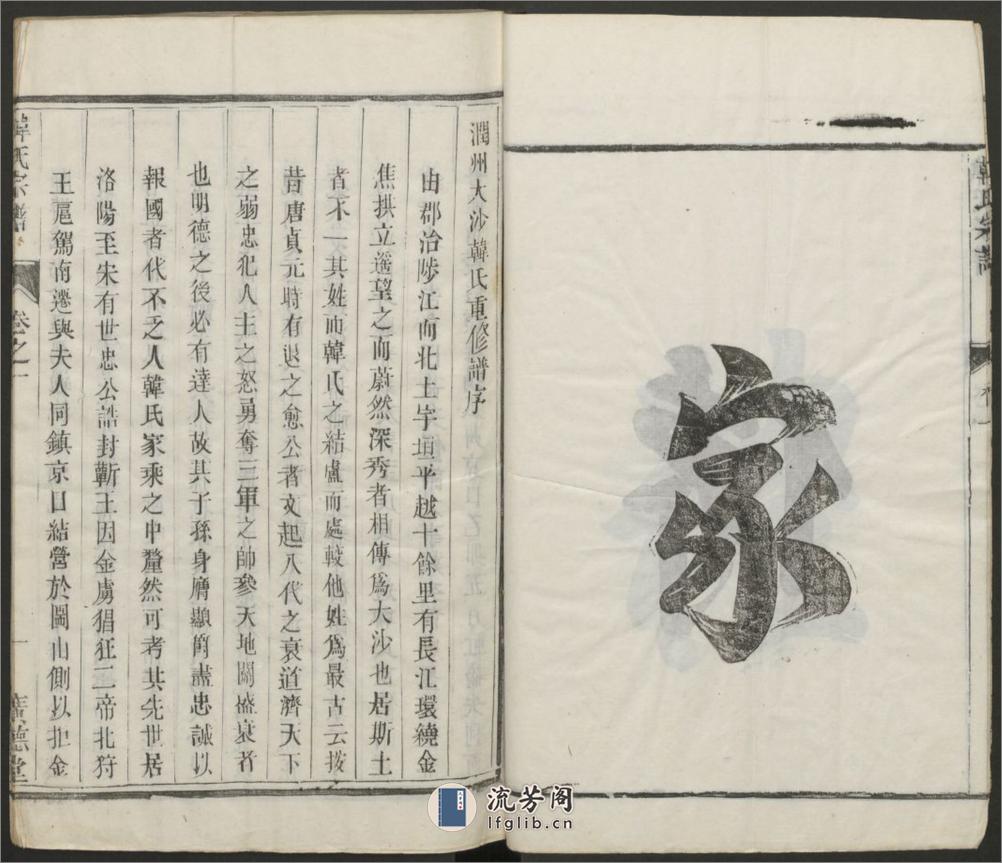 家
潤州大沙韓氏重修譜序
由郡治陟江而北土宇垣平越十餘里有長江環繞金
焦拱立遥望之而蔚然深秀者相傳爲大沙也居斯土
者不一其姓而韓氏之結廬而處較他姓爲最古云投
昔唐貞元時有退之愈公者文起八代之衰道濟天下
之弱忠犯人主之怒勇奪三軍之帥參天地關盛衰者
也明德之後必有達人故其子孫身膺顯爵盡忠誠以
報國者代不乏人韓氏家乘之中釐然可考其先世居
洛陽至宋有世忠公誥封蘄王因金虜猖狂二帝北狩
王扈駕南遷與夫人同鎮京口結營於圌山側以拒金
韓氏宗譜
卷之一
一
廣德堂
流芳阁
lfglib.cn